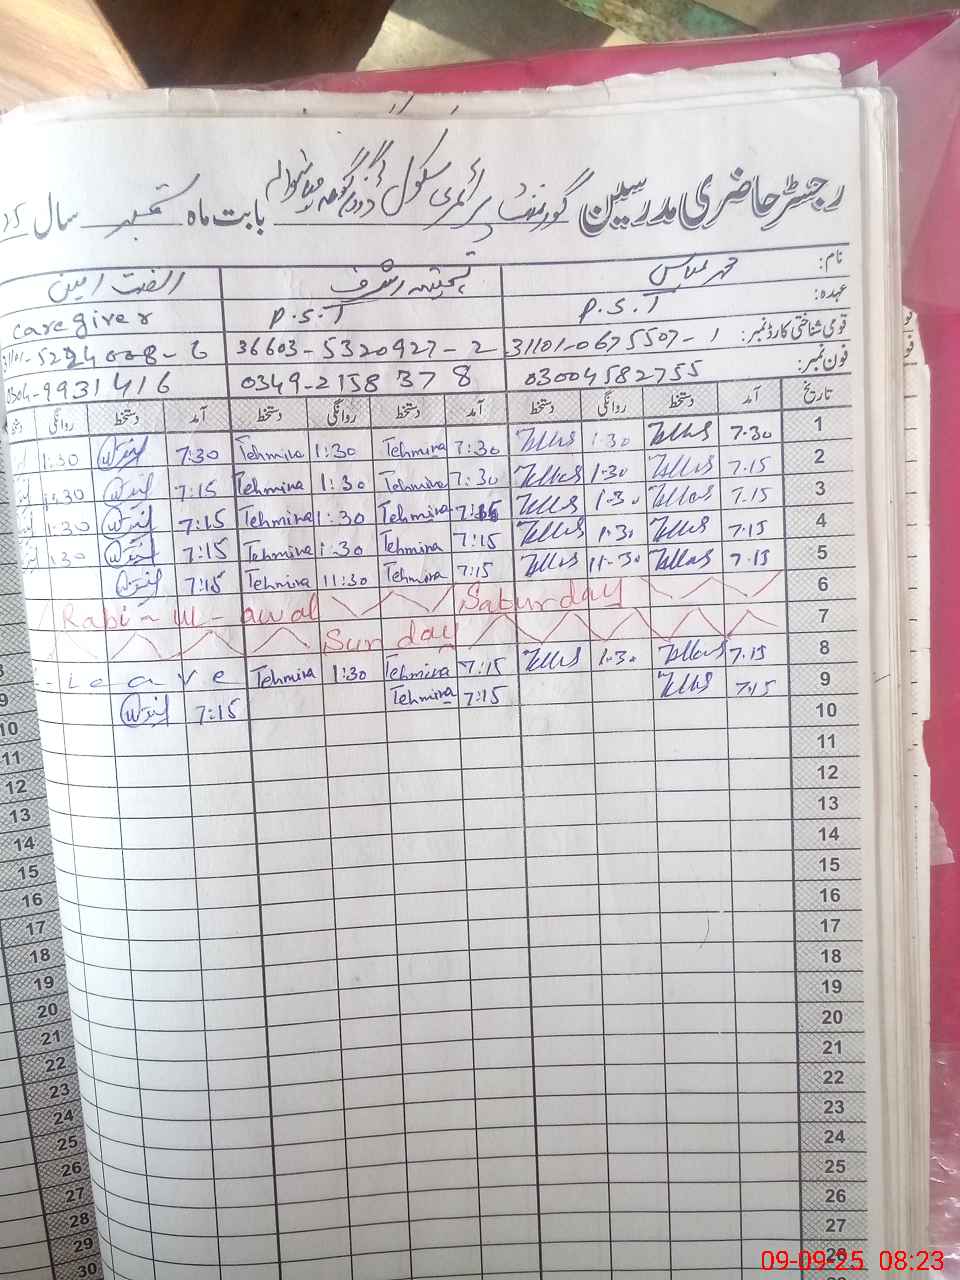 رجسٹر حاضری مدرسین گورنمنٹ پرائمری سکول بابت ماہ ستمبر سال
نام: محمد عباس تہمینہ اشرف الفت امین
عہدہ: P.S.T P.S.T Caregiver
قومی شناختی کارڈ نمبر: 31101-0675507-1 36603-5320927-2 31101-5224008-6
فون نمبر: 03004582755 0349-2158378 0304-9931416
تاریخ آمد دستخط روانگی دستخط آمد دستخط روانگی دستخط آمد دستخط روانگی
1 7:30 1:30 7:30 Tehmina 1:30 Tehmina 7:30 1:30
2 7.15 1.30 7:30 Tehmina 1:30 Tehmina 7:15
3 7.15 1.30 7:15 Tehmina 1:30 Tehmina 7:15 1:30
4 7.15 1.30 7:15 Tehmina 1:30 Tehmina 7:15 1:30
5 7.15 11.30 7:15 Tehmina 11:30 Tehmina 7:15
6 Rabi-ul-awal Saturday
7 Sunday
8 7.15 1.30 7:15 Tehmina 1:30 Tehmina leave
9 7.15 7:15 Tehmina 7:15
10
11
12
13
14
15
16
17
18
19
20
21
22
23
24
25
26
27
28
9
10
11
12
13
14
15
16
17
18
19
20
21
22
23
24
25
26
27
28
29
30
09-09-25 08:23